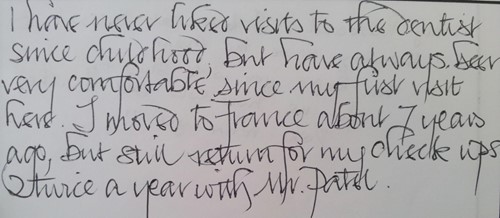 I have never liked visits to the dentist
since childhood, but have always been
very comfortable, since my first visit
here. I moved to France about 7 years
ago, but still return for my check ups
twice a year with Mr. Patel.